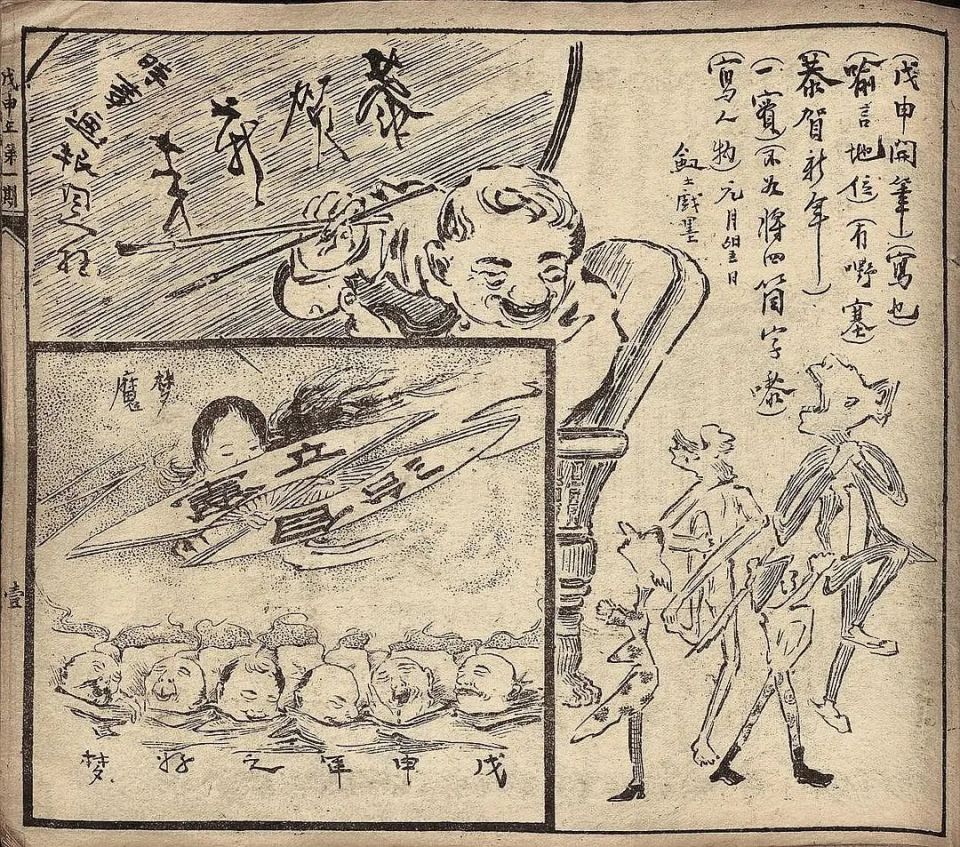 （戊申開筆）（寫乜）
（喻言地位）（有嘢塞）
（恭賀新年）
（一賓）（不如將四箇字嚟）
（寫人物）元月 日
劍士戲墨
恭賀新年
時事畫報同人
梦魔
立憲
自治
戊申年之好梦
戊申 第一期
壹